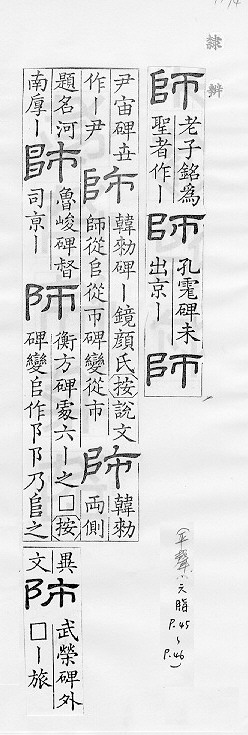 隸辨
師 老子銘為
聖者作丨
師 孔彪碑未
出京丨
師
尹宙碑世
作丨尹
師 韓勑碑丨鏡顔氏按說文
師從𠂤從帀碑變從市
師 韓勑
兩側
題名河
南厚丨
師 魯峻碑督
司京丨
師 衡方碑處六丨之□按
碑變𠂤作阝阝乃𠂤之
異
文
師 武榮碑外
□丨旅
(平聲:六脂
P.45~
P.46)